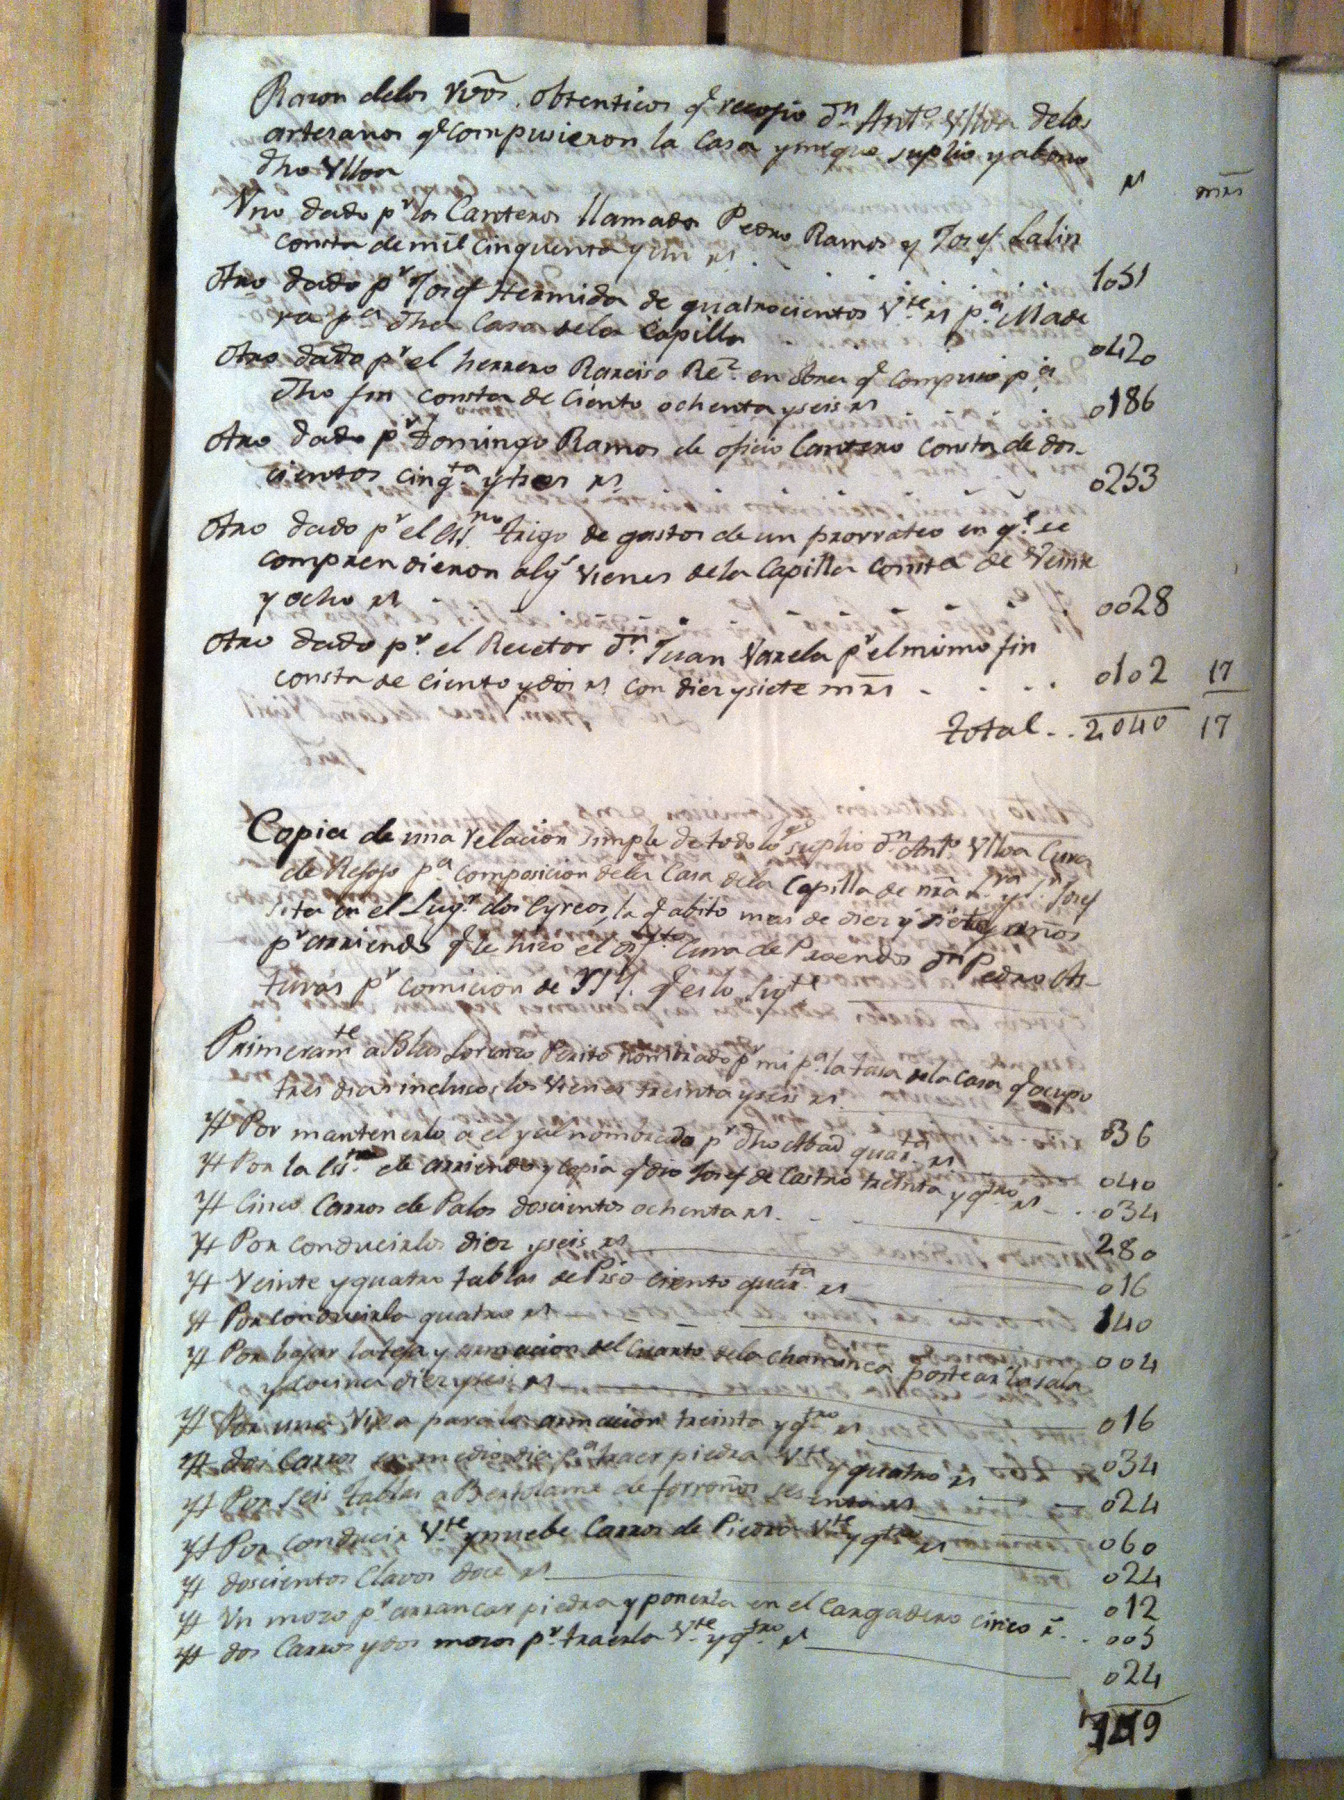 Razon delos Rvos. obtenticos q.e recojio Dn Anto. Ulloa delos
artesanos q.e compusieron la Casa y que suplio y abono
dho Ulloa
rs mrs
Vno dado pr los Canteros llamados Pedro Ramos y Josef Lalin
consta de mil cinquenta y un rs . . . . . 1051
Otro dado pr Josef Hermida de quatrocientos Vte rs p.a Made
ra pa dha Casa dela Capilla 0420
Otro dado pr el herrero Narciso Rez. en obra q.e compuso p.a
dho fin consta de Ciento ochenta y seis rs 0186
Otro dado pr Domingo Ramos de oficio Cantero consta de dos-
cientos cinqta. y tres rs 0253
Otro dado pr el Essno trigo de gastos de un prorrateo en q.e se
comprendieron alg.s vienes dela Capilla consta de Veinte
y ocho rs 0028
Otro dado pr. el Recetor Dn. Juan Varela pr el mismo fin
consta de ciento y dos rs con diez y siete mrs - . . . 0102 17
total . . 2040 17
Copia de una relacion simple de todo lo q.e suplio Dn. Anto. Ulloa Cura
de Refojo pa. composicion dela Casa dela Capilla de nra Sra y Sn Josef
sita en el Lugr. dos Eyreos, la q.e abito mas de diez y siete años
pr arriendo q.e le hizo el Cura de Proendos Dn Pedro As-
turas pr comicion de VSY. q.e es lo Sigte
Primeramte a Blas Lorenzo Perito nombrado pr mi pa. la tasa dela Casa q.e ocupo
tres dias inclusos los vienes treinta y seis rs. 036
Yt Por mantenerlo a el y al nombrado pr dho Abad quarta rs 040
Yt Por la de arriendo y copia q.e dio Josef de Castro treinta y qtro rs - . . 034
Yt Cinco Carros de Palos doscientos ochenta rs. 280
Yt Por conducirlos diez y seis rs 016
Yt Veinte y quatro tablas de Piso ciento quarta rs 140
Yt Por conducirla quatro rs 004
Yt Por bajar la teja y armacion del Cuarto dela Chaminea postear la sala
y cocina diez y seis rs 016
Yt Por una Viga para la armacion treinta y qtro rs 034
Yt dos Carros en medio dia pa traer piedra Vte y quatro rs 024
Yt Por seis tablas a Bertolame de forroños sesenta rs 060
Yt Por conducir Vte y nuebe Carros de Piedra Vte y qtro rs 024
Yt doscientos Clavos doce rs 012
Yt Un mozo pr arrancar piedra y ponerla en el Cargadero cinco r. . . 005
Yt dos Carros y dos mozos pr. traerla Vte y qtro. rs 024